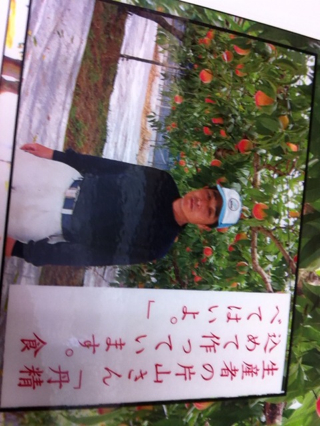 生産者の片山さん「丹精
込めて作っています。食
べてはいよ。」